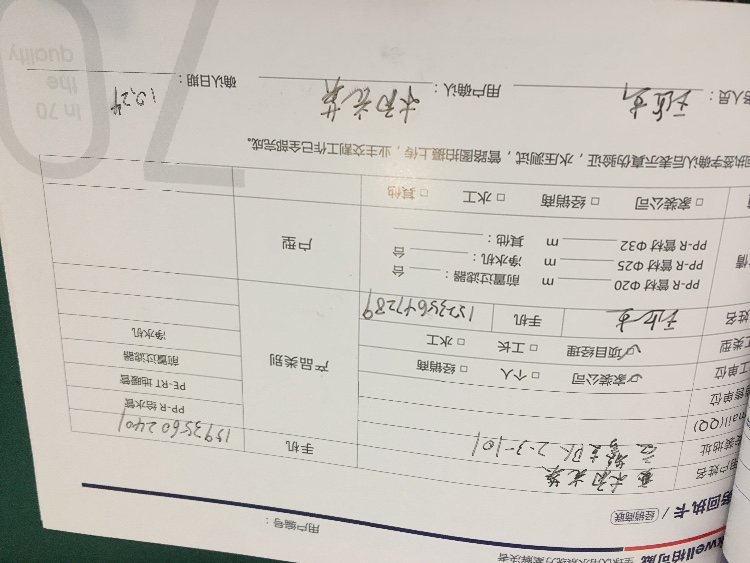 kwell柏可威
用户编号：
回执卡 / 经销商联
用户姓名
手机 15935602401
装地址 2-3-101
mail(QQ)
售单位
工单位 家装公司 □ 个人 □ 经销商
工类型 项目经理 □ 工长 □ 水工
姓名 手机 15235647289
产品类别
PP-R 给水管
PE-RT 地暖管
前置过滤器
净水机
PP-R 管材 Φ20 m 前置过滤器： 台
PP-R 管材 Φ25 m 净水机： 台
PP-R 管材 Φ32 m 其他：
户型
□ 家装公司 □ 经销商 □ 水工 □ 其他
执签字确认后表示真伪验证，水压测试，管路图拍摄上传，业主交割工作已全部完成。
人员： 用户确认： 确认日期： 10.24
In 70
the
quality
70